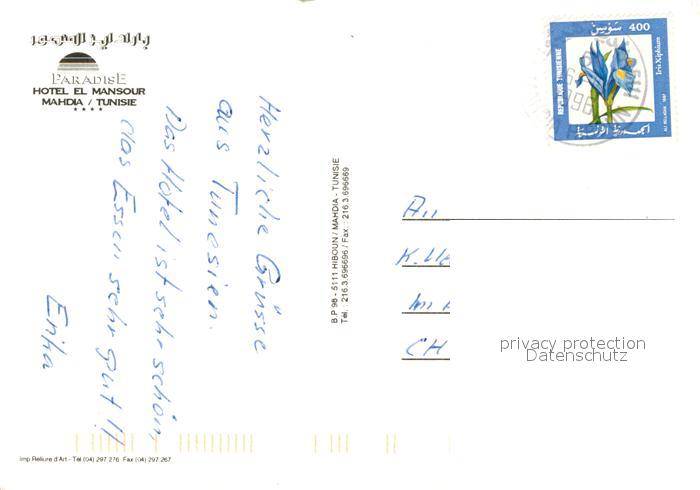 PARADISE
HOTEL EL MANSOUR
MAHDIA / TUNISIE
★★★★
Herzliche Grüsse
aus Tunesien.
Das Hotel ist sehr schön,
das Essen sehr gut!!
Erika
B.P 98 - 5111 HIBOUN / MAHDIA - TUNISIE
Tél.: 216.3.696696 / Fax.: 216.3.696669
400
REPUBLIQUE TUNISIENNE
Iris Xiphium
الجمهورية التونسية
An
CH
privacy protection
Datenschutz
Imp Reliure d'Art - Tél (04) 297 276 Fax (04) 297 267